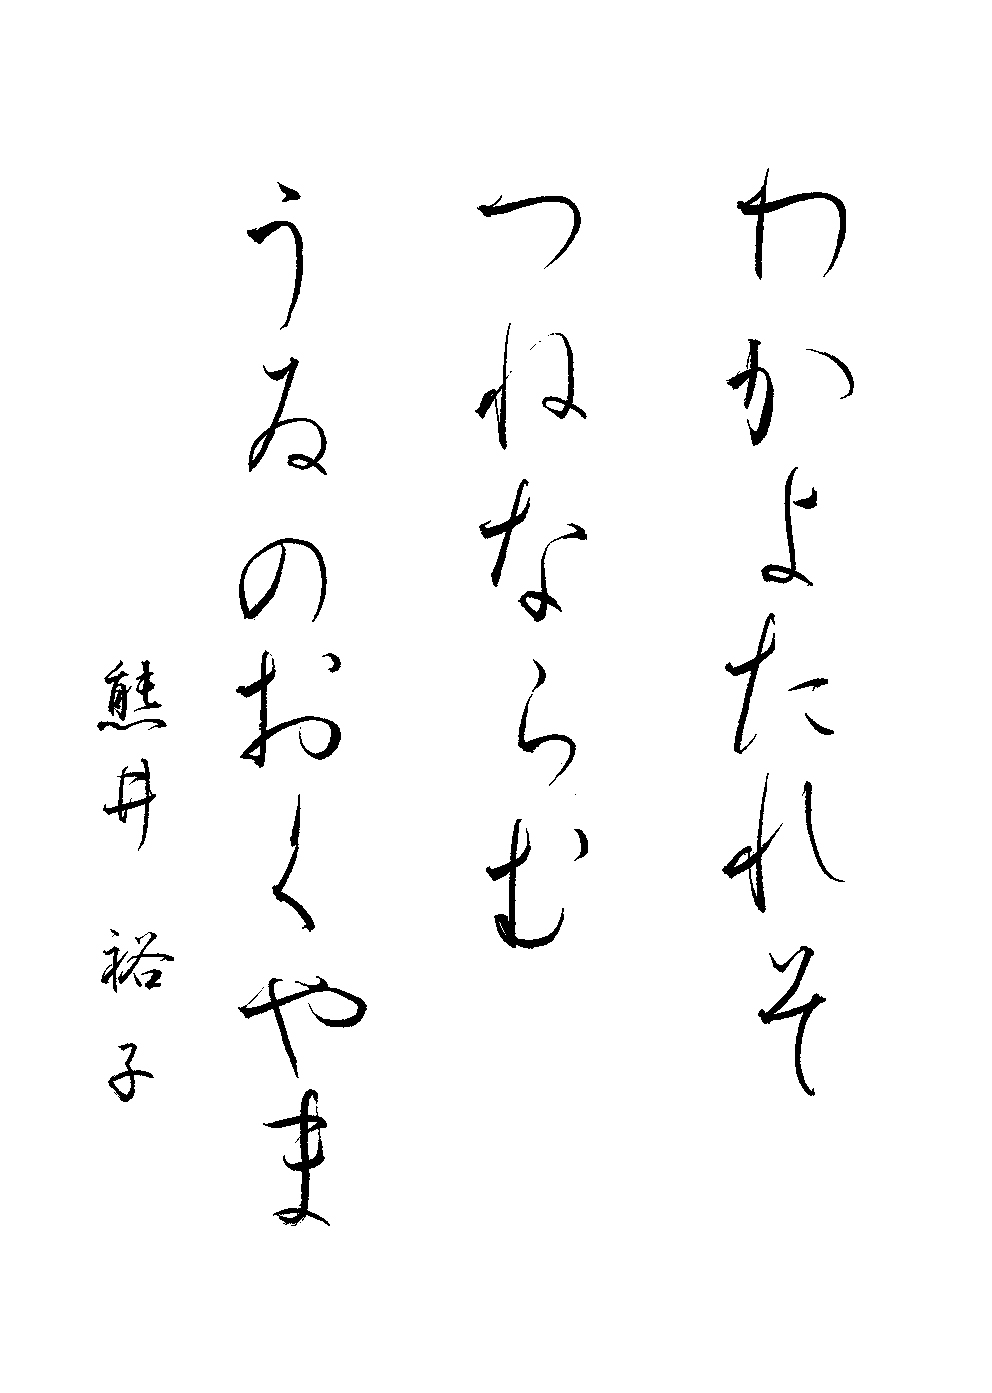 わかよたれそ
つねならむ
うゐのおくやま
熊井 裕子